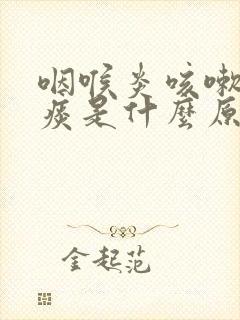 咽喉炎咳嗽
痰是什麼原
金起范